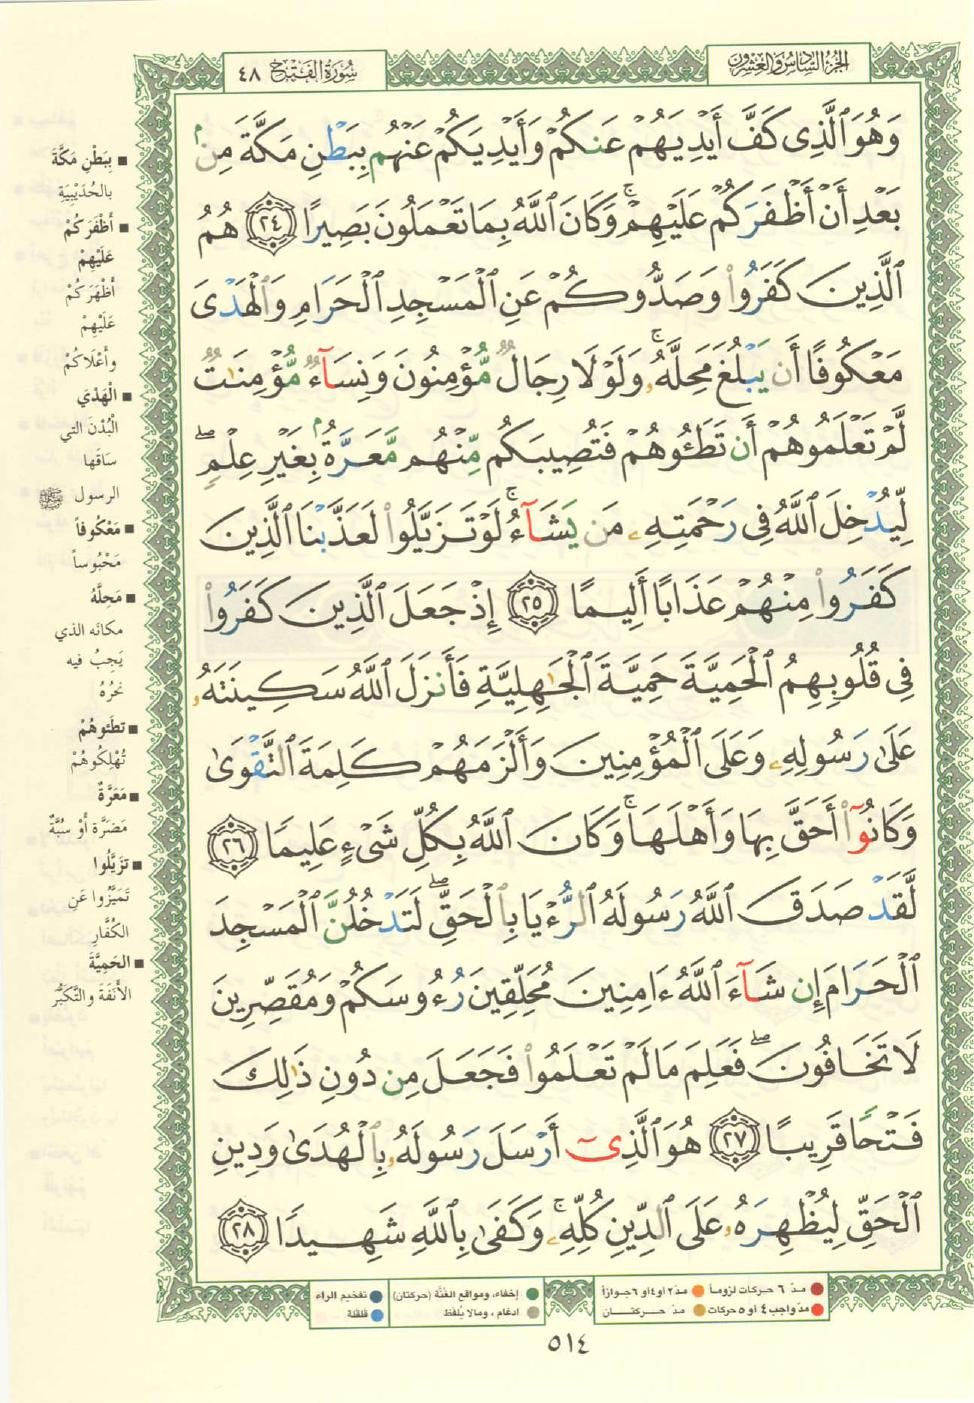 الجزء السادس والعشرون
سورة الفتح ٤٨
وَهُوَ ٱلَّذِى كَفَّ أَيْدِيَهُمْ عَنكُمْ وَأَيْدِيَكُمْ عَنْهُم بِبَطْنِ مَكَّةَ مِنۢ
بَعْدِ أَنْ أَظْفَرَكُمْ عَلَيْهِمْ ۚ وَكَانَ ٱللَّهُ بِمَا تَعْمَلُونَ بَصِيرًا ٢٤ هُمُ
ٱلَّذِينَ كَفَرُوا۟ وَصَدُّوكُمْ عَنِ ٱلْمَسْجِدِ ٱلْحَرَامِ وَٱلْهَدْىَ
مَعْكُوفًا أَن يَبْلُغَ مَحِلَّهُۥ ۚ وَلَوْلَا رِجَالٌ مُّؤْمِنُونَ وَنِسَآءٌ مُّؤْمِنَـٰتٌ
لَّمْ تَعْلَمُوهُمْ أَن تَطَـُٔوهُمْ فَتُصِيبَكُم مِّنْهُم مَّعَرَّةٌۢ بِغَيْرِ عِلْمٍ ۖ
لِّيُدْخِلَ ٱللَّهُ فِى رَحْمَتِهِۦ مَن يَشَآءُ ۚ لَوْ تَزَيَّلُوا۟ لَعَذَّبْنَا ٱلَّذِينَ
كَفَرُوا۟ مِنْهُمْ عَذَابًا أَلِيمًا ٢٥ إِذْ جَعَلَ ٱلَّذِينَ كَفَرُوا۟
فِى قُلُوبِهِمُ ٱلْحَمِيَّةَ حَمِيَّةَ ٱلْجَـٰهِلِيَّةِ فَأَنزَلَ ٱللَّهُ سَكِينَتَهُۥ
عَلَىٰ رَسُولِهِۦ وَعَلَى ٱلْمُؤْمِنِينَ وَأَلْزَمَهُمْ كَلِمَةَ ٱلتَّقْوَىٰ
وَكَانُوٓا۟ أَحَقَّ بِهَا وَأَهْلَهَا ۚ وَكَانَ ٱللَّهُ بِكُلِّ شَىْءٍ عَلِيمًا ٢٦
لَّقَدْ صَدَقَ ٱللَّهُ رَسُولَهُ ٱلرُّءْيَا بِٱلْحَقِّ ۖ لَتَدْخُلُنَّ ٱلْمَسْجِدَ
ٱلْحَرَامَ إِن شَآءَ ٱللَّهُ ءَامِنِينَ مُحَلِّقِينَ رُءُوسَكُمْ وَمُقَصِّرِينَ
لَا تَخَافُونَ ۖ فَعَلِمَ مَا لَمْ تَعْلَمُوا۟ فَجَعَلَ مِن دُونِ ذَٰلِكَ
فَتْحًا قَرِيبًا ٢٧ هُوَ ٱلَّذِىٓ أَرْسَلَ رَسُولَهُۥ بِٱلْهُدَىٰ وَدِينِ
ٱلْحَقِّ لِيُظْهِرَهُۥ عَلَى ٱلدِّينِ كُلِّهِۦ ۚ وَكَفَىٰ بِٱللَّهِ شَهِيدًا ٢٨
■ بِبَطْنِ مَكَّةَ
بالحُدَيْبِيَةِ
■ أَظْفَرَكُمْ
عَلَيْهِمْ
أَظْهَرَكُمْ
عَلَيْهِمْ
وأَعْلَاكُمْ
■ الْهَدْيَ
الْبُدْنَ التي
سَاقَها
الرسول ﷺ
■ مَعْكُوفاً
مَحْبُوساً
■ مَحِلَّهُ
مكانه الذي
يَجِبُ فيه
نَحْرُهُ
■ تطَئوهُمْ
تُهْلِكُوهُمْ
■ مَعَرَّةٌ
مَضَرَّة أَوْ سُبَّةٌ
■ تزَيَّلُوا
تَمَيَّزُوا عَنِ
الكُفَّارِ
■ الحَمِيَّةَ
الأَنَفَةَ والتَّكَبُّر
مدّ ٦ حركات لزوماً ● مدّ ٢ أو ٤ أو ٦ جوازاً
مدّ واجب ٤ أو ٥ حركات ● مدّ حركتان
إخفاء، ومواقع الغُنَّة (حركتان) ● تفخيم الراء
ادغام، ومالا يُلفظ ● قلقلة
٥١٤